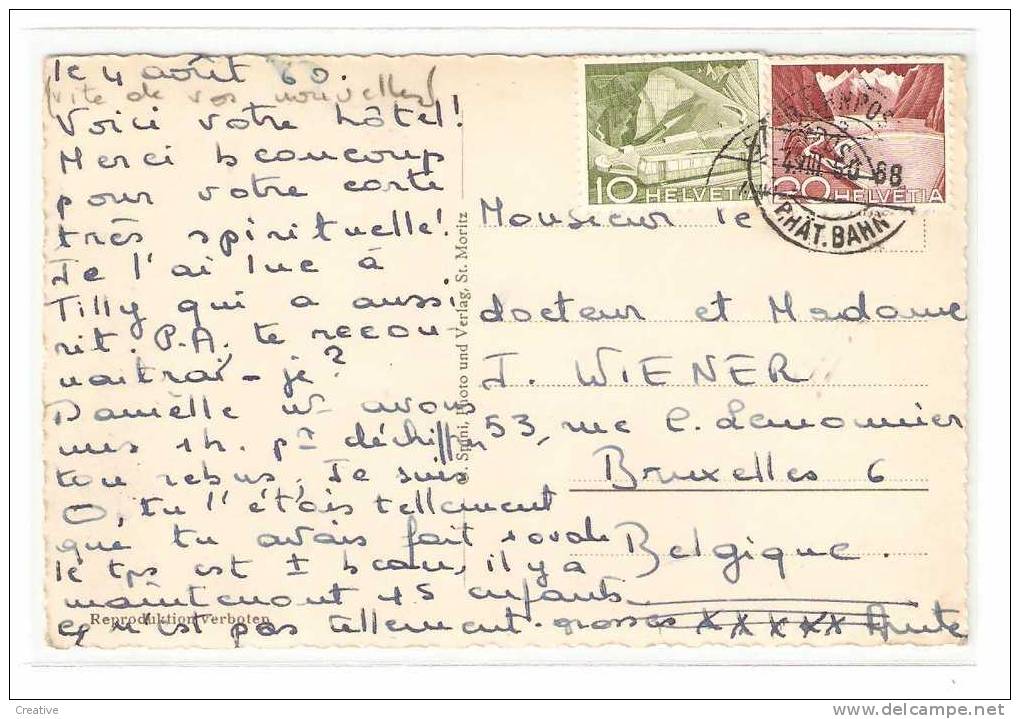 le 4 août 60.
(vite de vos nouvelles)
Voici votre hôtel!
Merci beaucoup
pour votre carte
très spirituelle!
Je l'ai lue à
Tilly qui a aussi
rit. P.A. te recon
naitrai-je?
Danièlle ns avons
mis 1h. pr déchiffrer
ton rebus. Je suis
tu l'étais tellement
que tu avais fait
le tps est ± beau, il y a
maintenant 45 enfants
ce n'est pas tellement. grosses xxxxx
Reproduktion verboten
Spini, Photo und Verlag, St. Moritz
10 HELVETIA
20 HELVETIA
-4.VIII.60-68
RHÄT. BAHN
Monsieur le
docteur et Madame
J. WIENER
53, rue C. Lemonnier
Bruxelles 6
Belgique.
Creative
www.delcampe.net